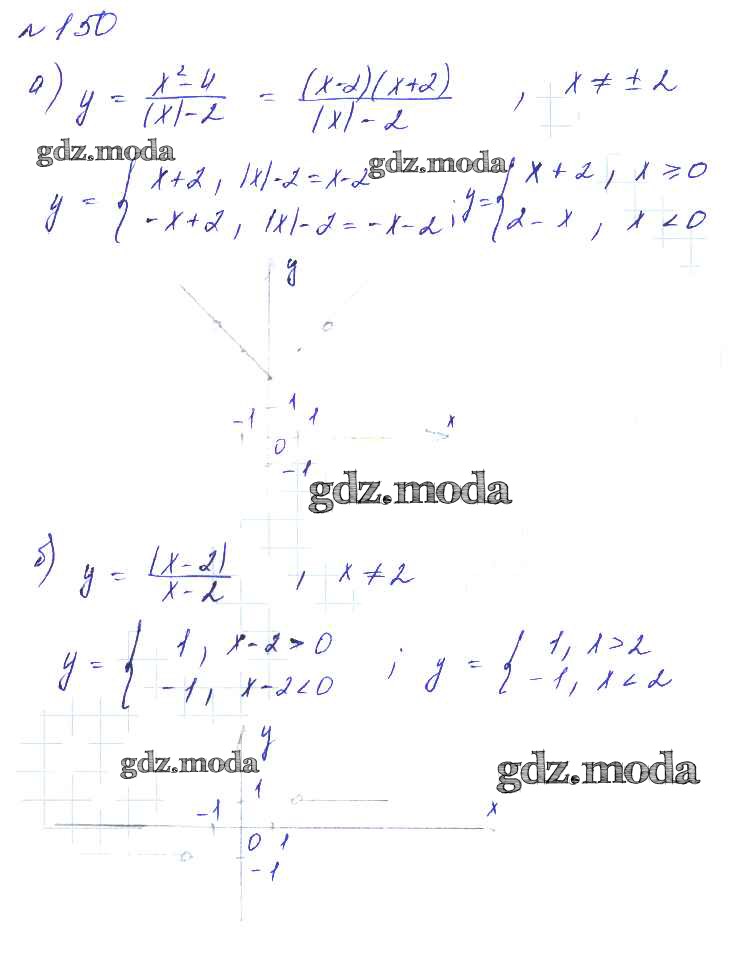 № 150
а) y = (x²-4)/(|x|-2) = ((x-2)(x+2))/(|x|-2) , x ≠ ± 2
gdz.moda gdz.moda
y = { x+2, |x|-2 = x-2 ; y = { x + 2, x ≥ 0
-x+2, |x|-2 = -x-2 2 - x , x < 0
y
1
-1 1 x
0
-1
gdz.moda
б) y = |x-2|/(x-2) , x ≠ 2
y = { 1, x-2 > 0 ; y = { 1, x > 2
-1, x-2 < 0 -1, x < 2
y
gdz.moda gdz.moda
1
-1 x
0 1
-1